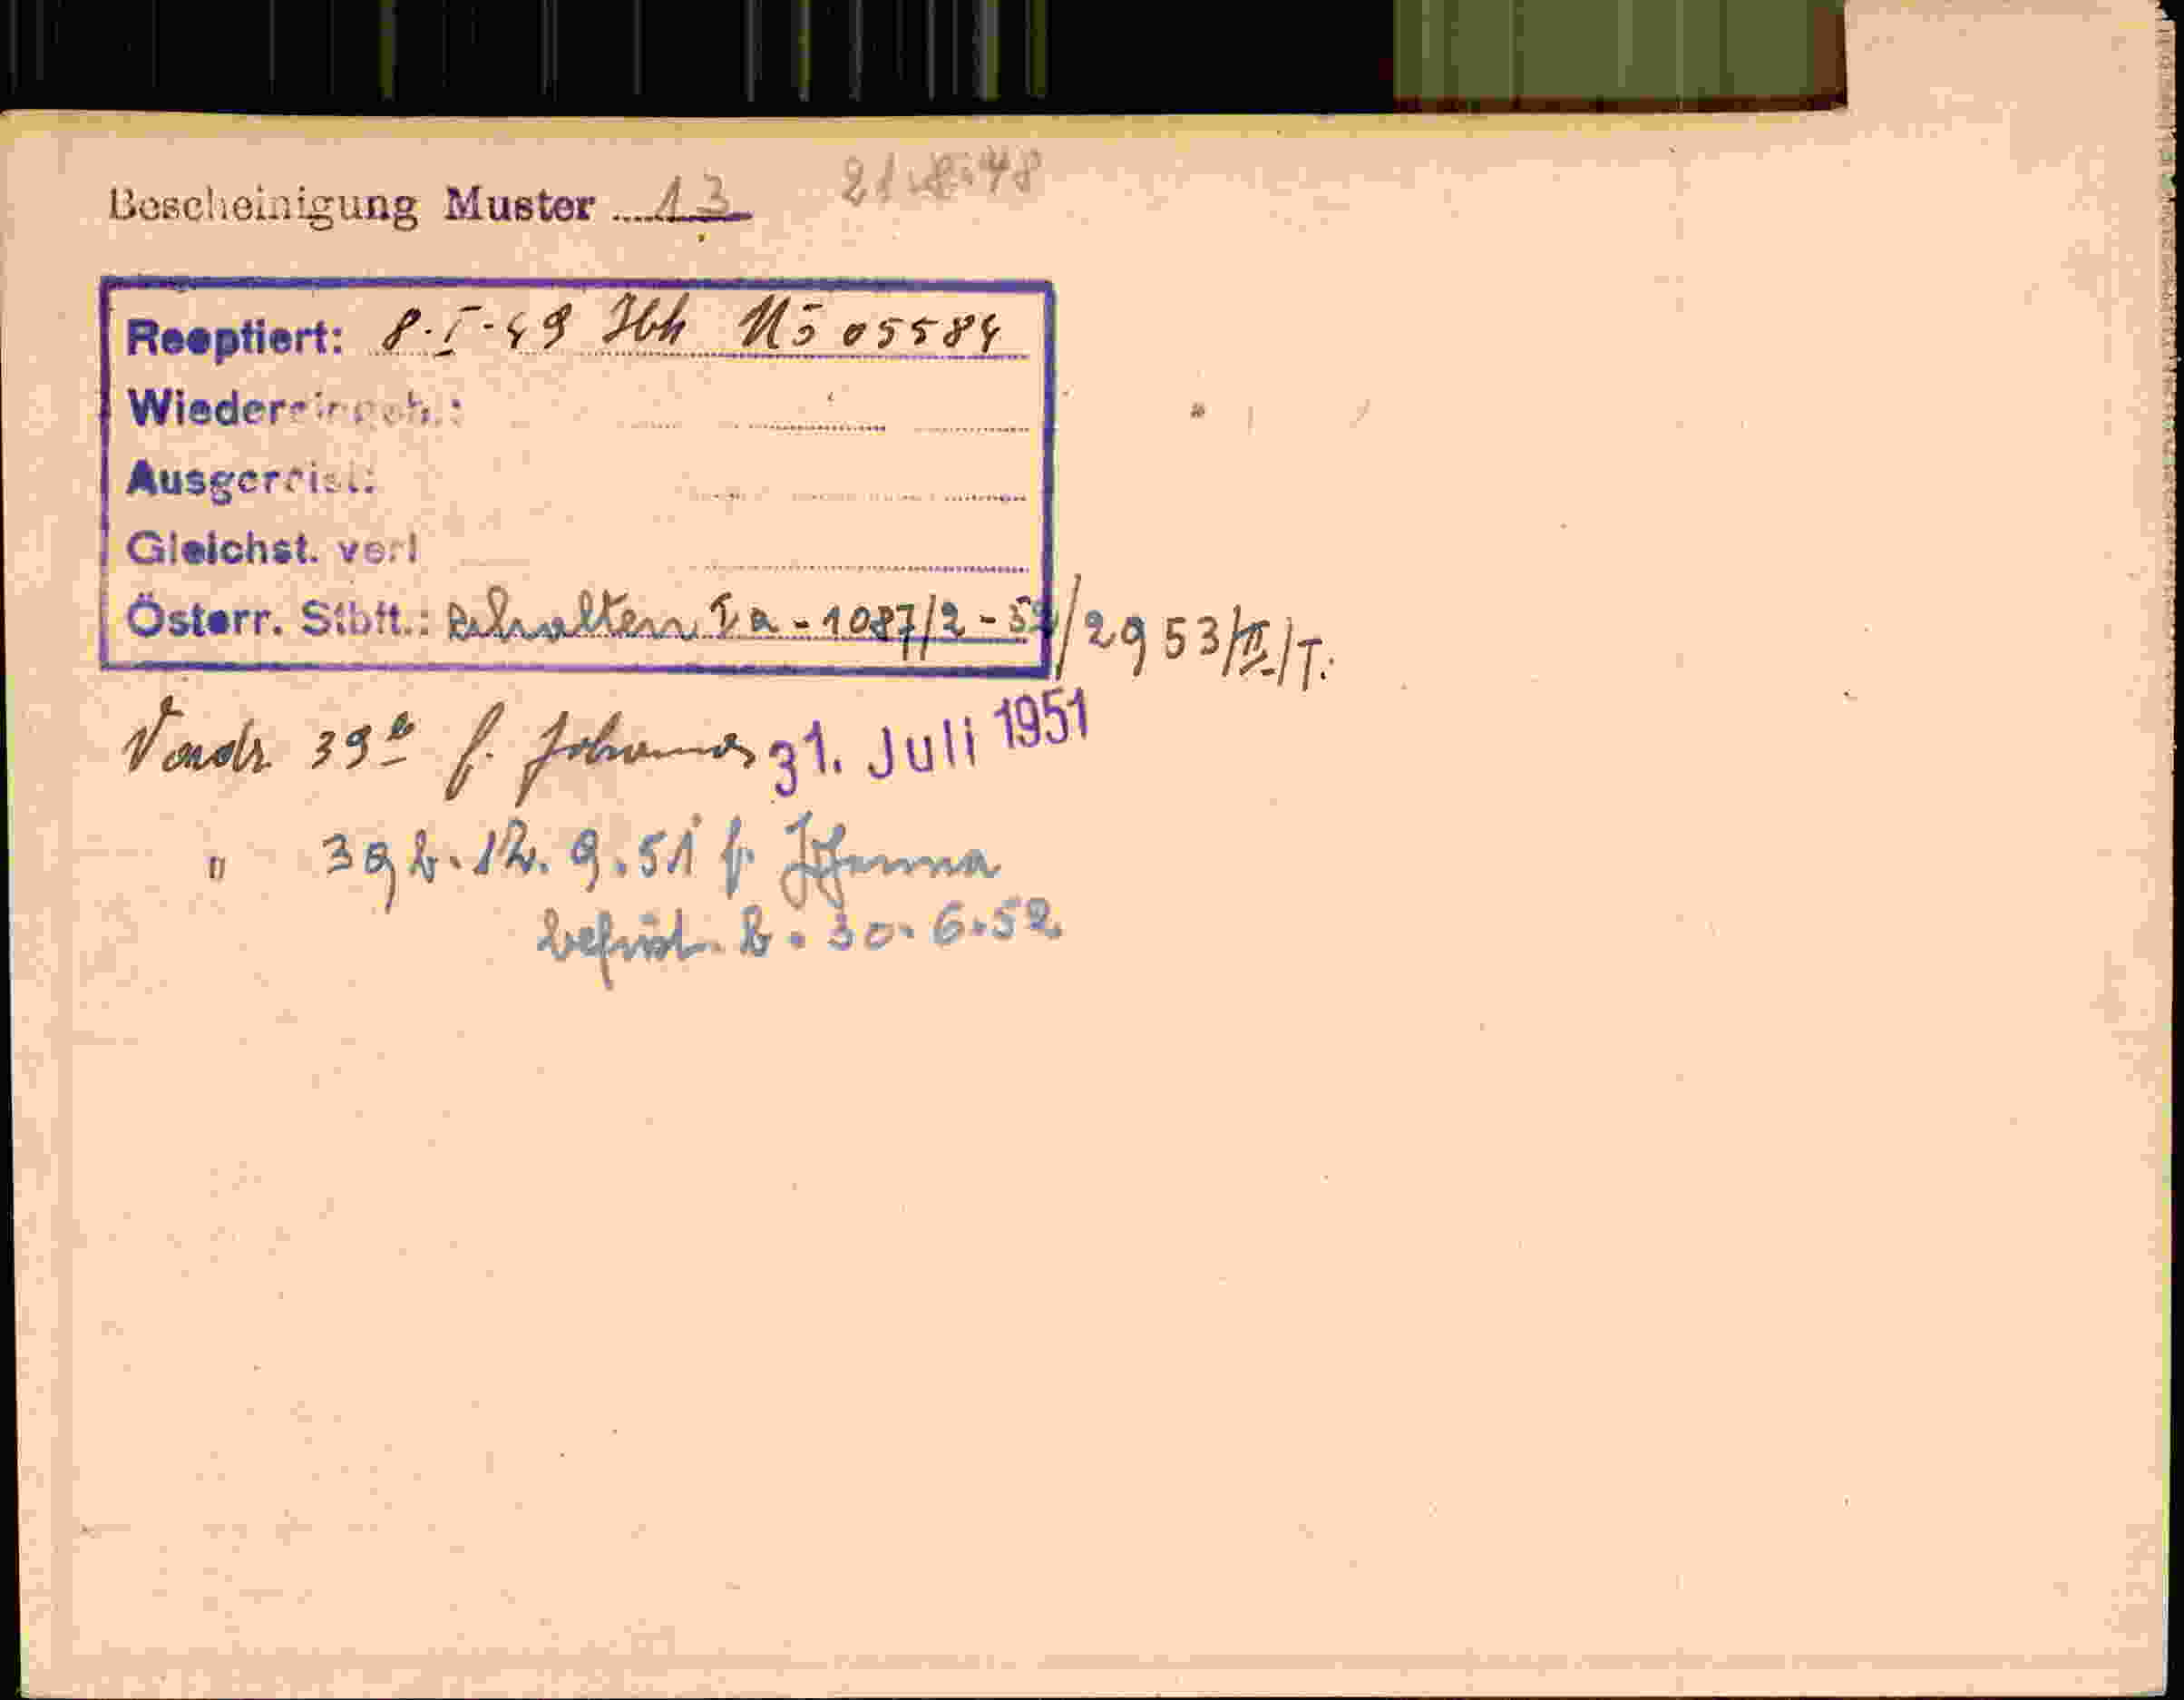 Bescheinigung Muster 13 21.8.48
Reoptiert: 8.I.49 Ibk Nö 05584
Wiedereingeb.:
Ausgereist:
Gleichst. verl
Österr. Stbft.: erhalten Ia-1087/2-52/2953/II/T.
Vordr. 39b f. Johannes 31. Juli 1951
" 39b. 12.9.51 f. Johanna
befrist. b. 30.6.52